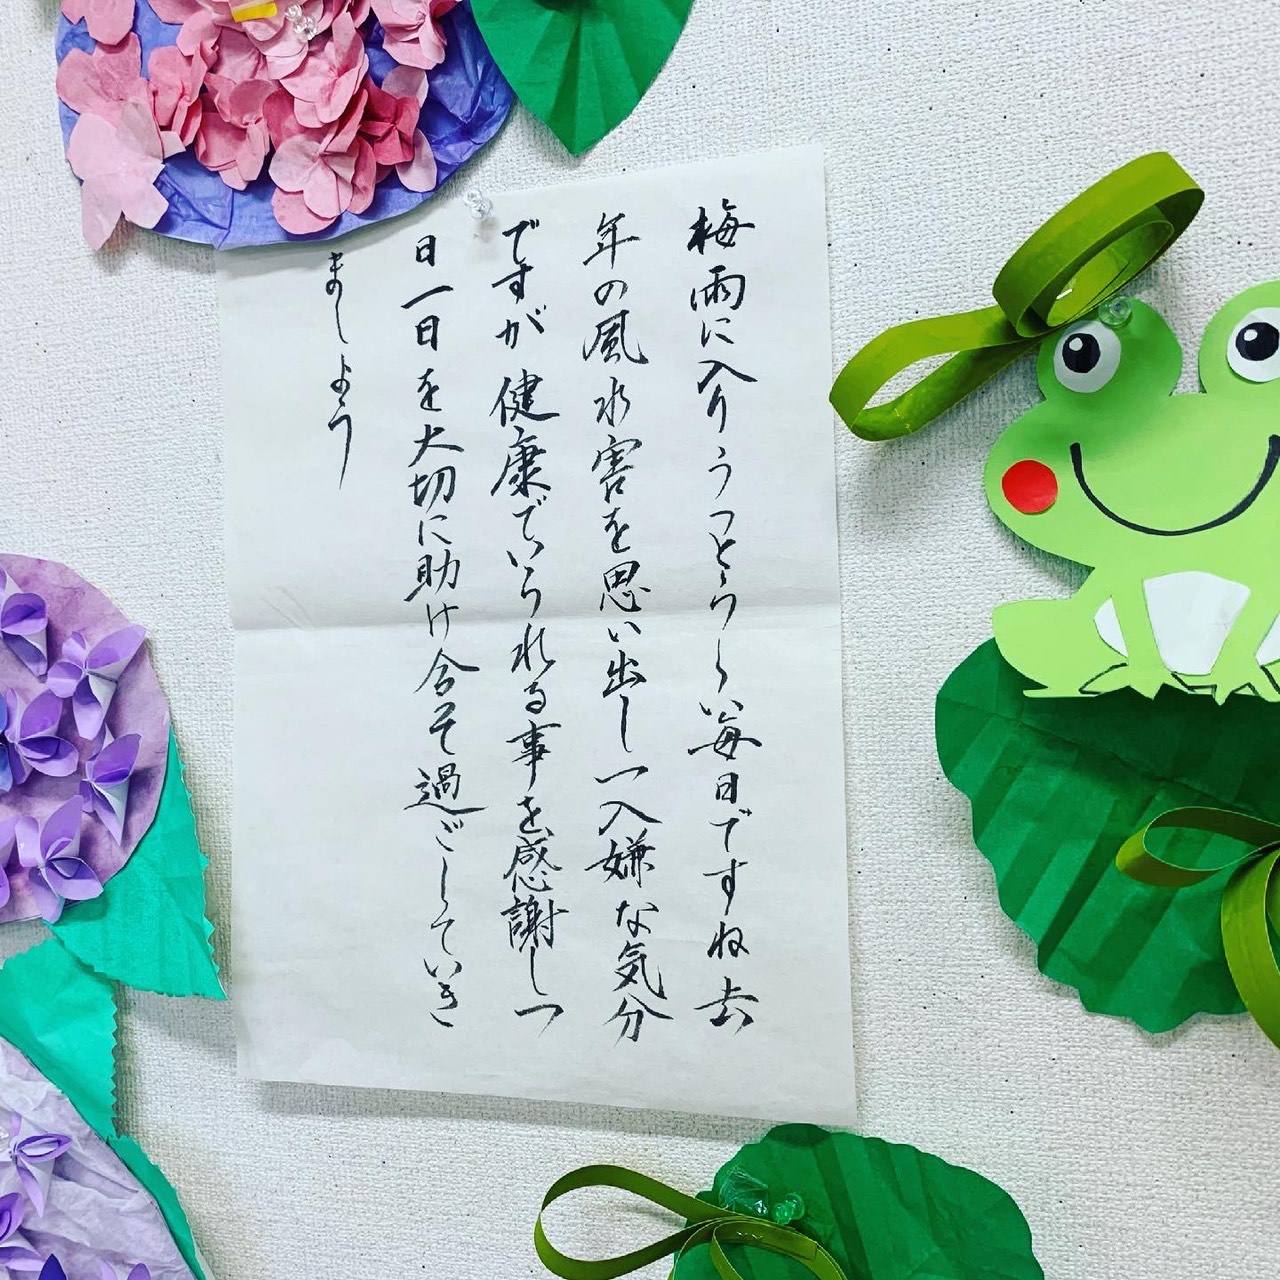 梅雨に入りうっとうしい毎日ですね去
年の風水害を思い出し一入嫌な気分
ですが健康でいられる事を感謝し一
日一日を大切に助け合って過ごしていき
ましょう